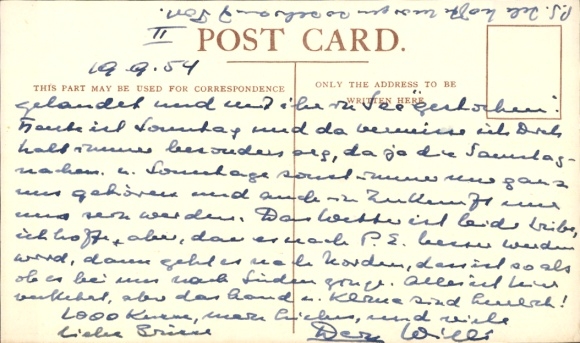 P.S. Ich hoffe morgen
II
POST CARD.
19.9.54
THIS PART MAY BE USED FOR CORRESPONDENCE
ONLY THE ADDRESS TO BE
WRITTEN HERE
gelandet und mit ihr in See gestochen!
Heute ist Sonntag und da vermisse ich Dich
halt immer besonders arg, da ja die Samstag-
nachm. u. Sonntage sonst immer nur ganz
uns gehören und auch in Zukunft nur
uns sein werden. Das Wetter ist leider trübe,
ich hoffe aber, dass es nach P. E. besser werden
wird, dann geht es nach Norden, das ist so als
ob es bei uns nach Süden ginge. Alles ist hier
verkehrt, aber das Land u. Klima sind herrlich!
1000 Küsse, mein Liebes, und viele
liebe Grüsse Dein Willi